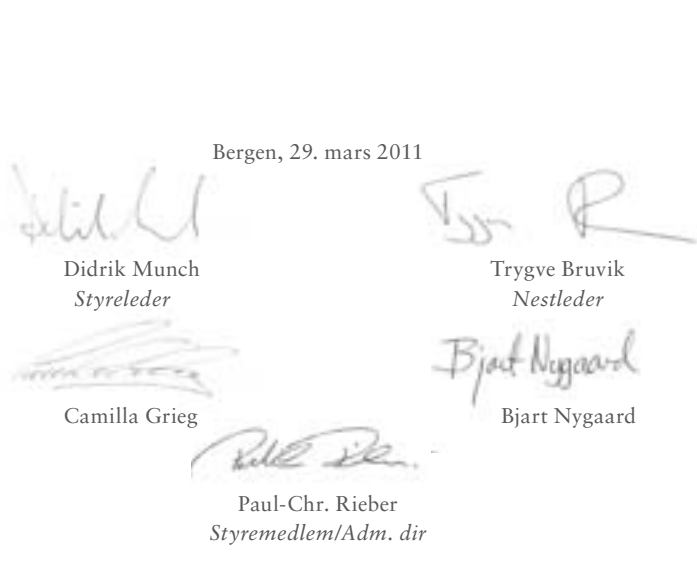 Bergen, 29. mars 2011
Didrik Munch
Styreleder
Trygve Bruvik
Nestleder
Bjart Nygaard
Camilla Grieg
Bjart Nygaard
Paul-Chr. Rieber
Styremedlem/Adm. dir